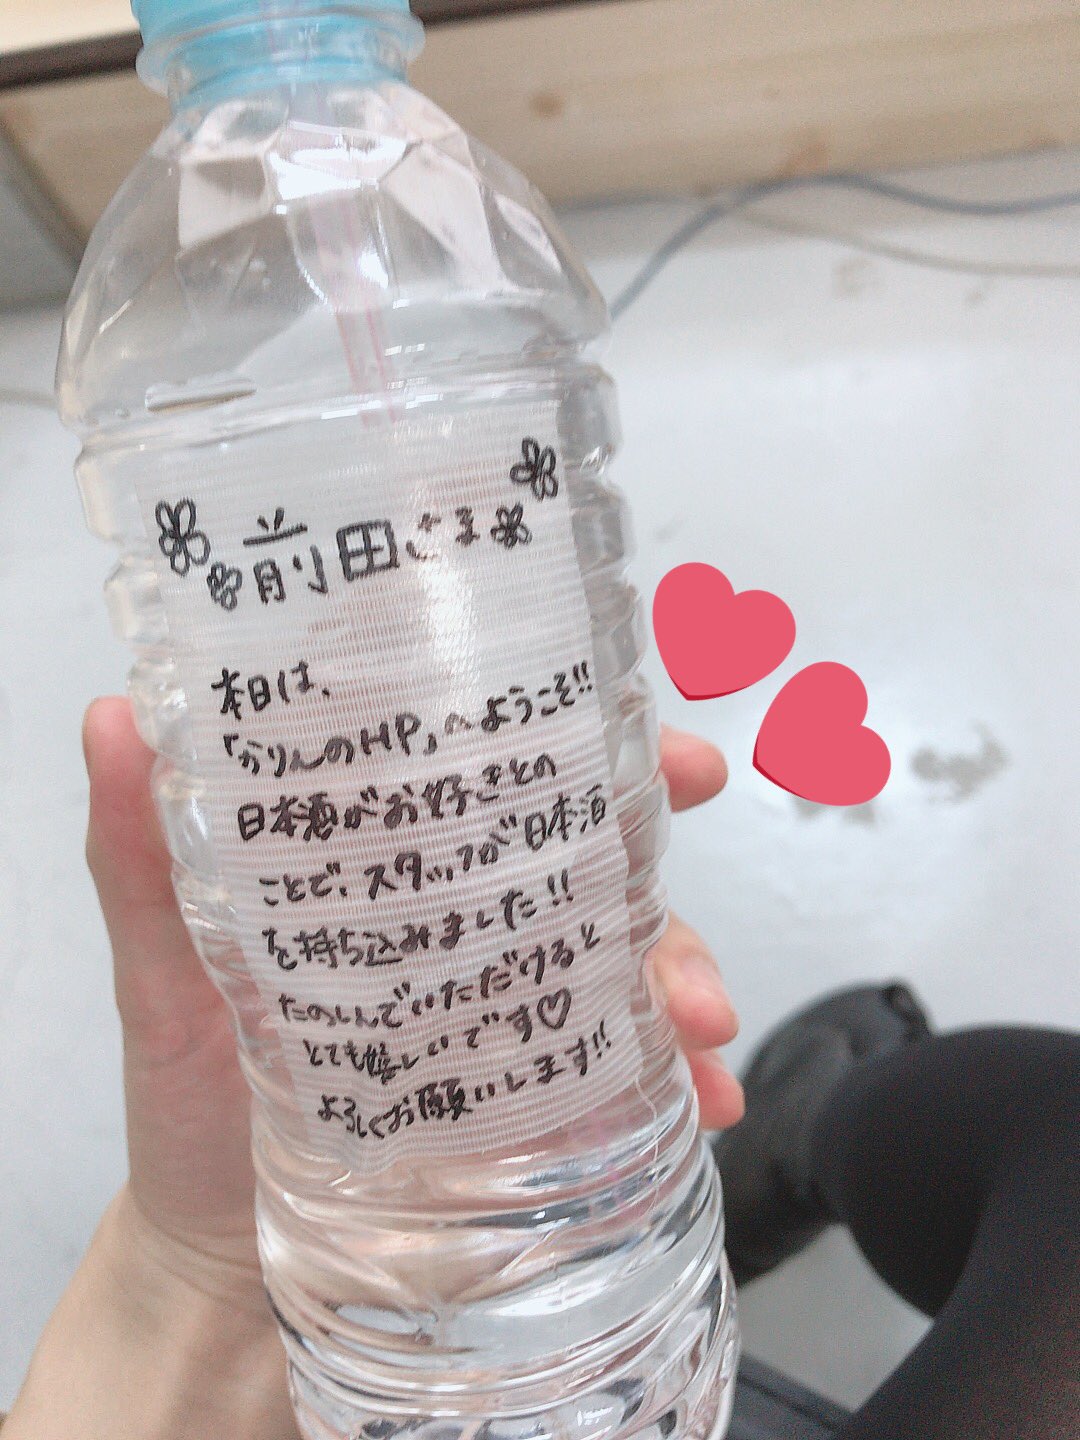 前田さま
本日は、
「かりんのHP」へようこそ!!
日本酒がお好きとの
ことで、スタッフが日本酒
を持ち込みました!!
たのしんでいただけると
とても嬉しいです♡
よろしくお願いします!!